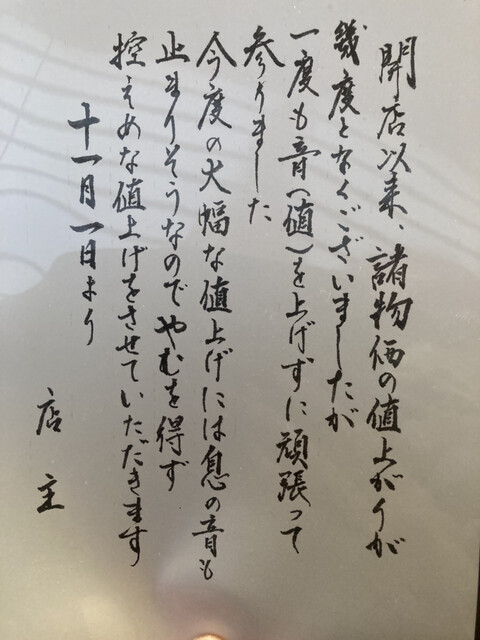 開店以来、諸物価の値上がりが
幾度となくございましたが
一度も音(値)を上げずに頑張って
参りました
今度の大幅な値上げには息の音も
止まりそうなのでやむを得ず
控えめな値上げをさせていただきます
十一月一日より
店主